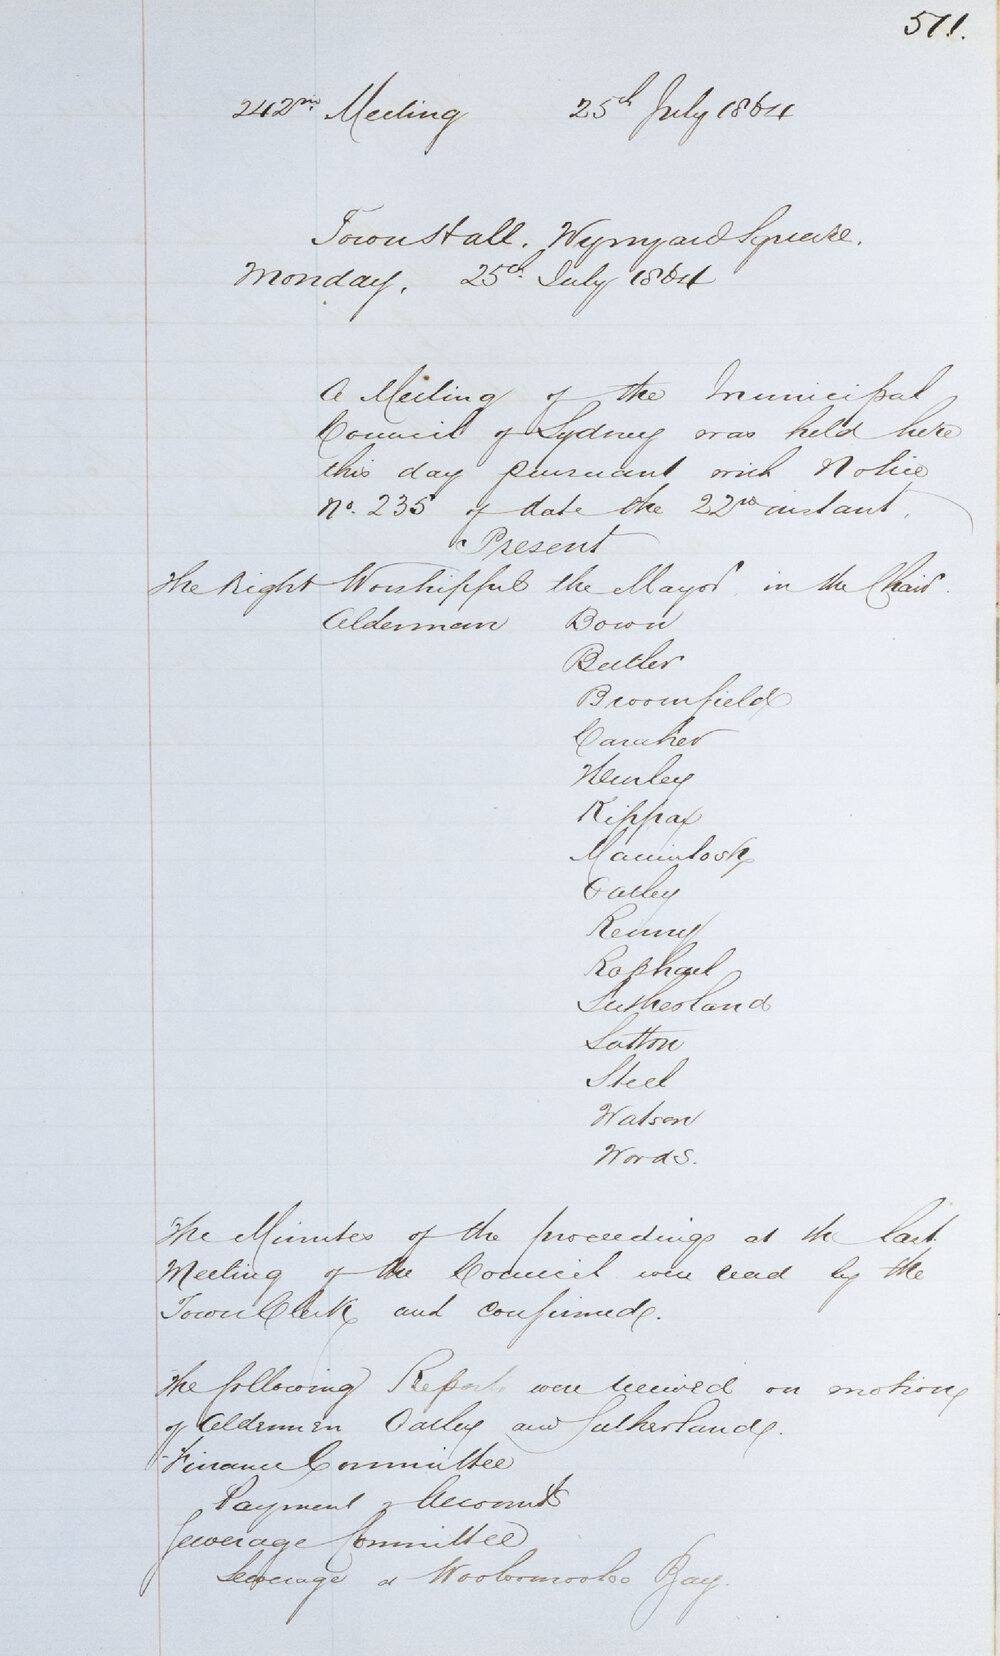 571.
242nd Meeting 25th July 1864
Town Hall. Wynyard Square.
Monday. 25th July 1864
A Meeting of the Municipal
Council of Sydney was held here
this day pursuant with Notice
No. 235 of date the 22nd instant.
Present
The Right Worshipful the Mayor in the Chair.
Alderman Bown
Butler
Broomfield
Caraher
Hurley
Kippax
Macintosh
Oatley
Renny
Raphael
Sutherland
Sutton
Steel
Watson
Woods.
The Minutes of the proceedings at the last
Meeting of the Council were read by the
Town Clerk and confirmed.
The following Reports were received on motion
of Aldermen Oatley and Sutherland.
Finance Committee
Payment of Accounts
Sewerage Committee
Sewerage at Wooloomooloo Bay.